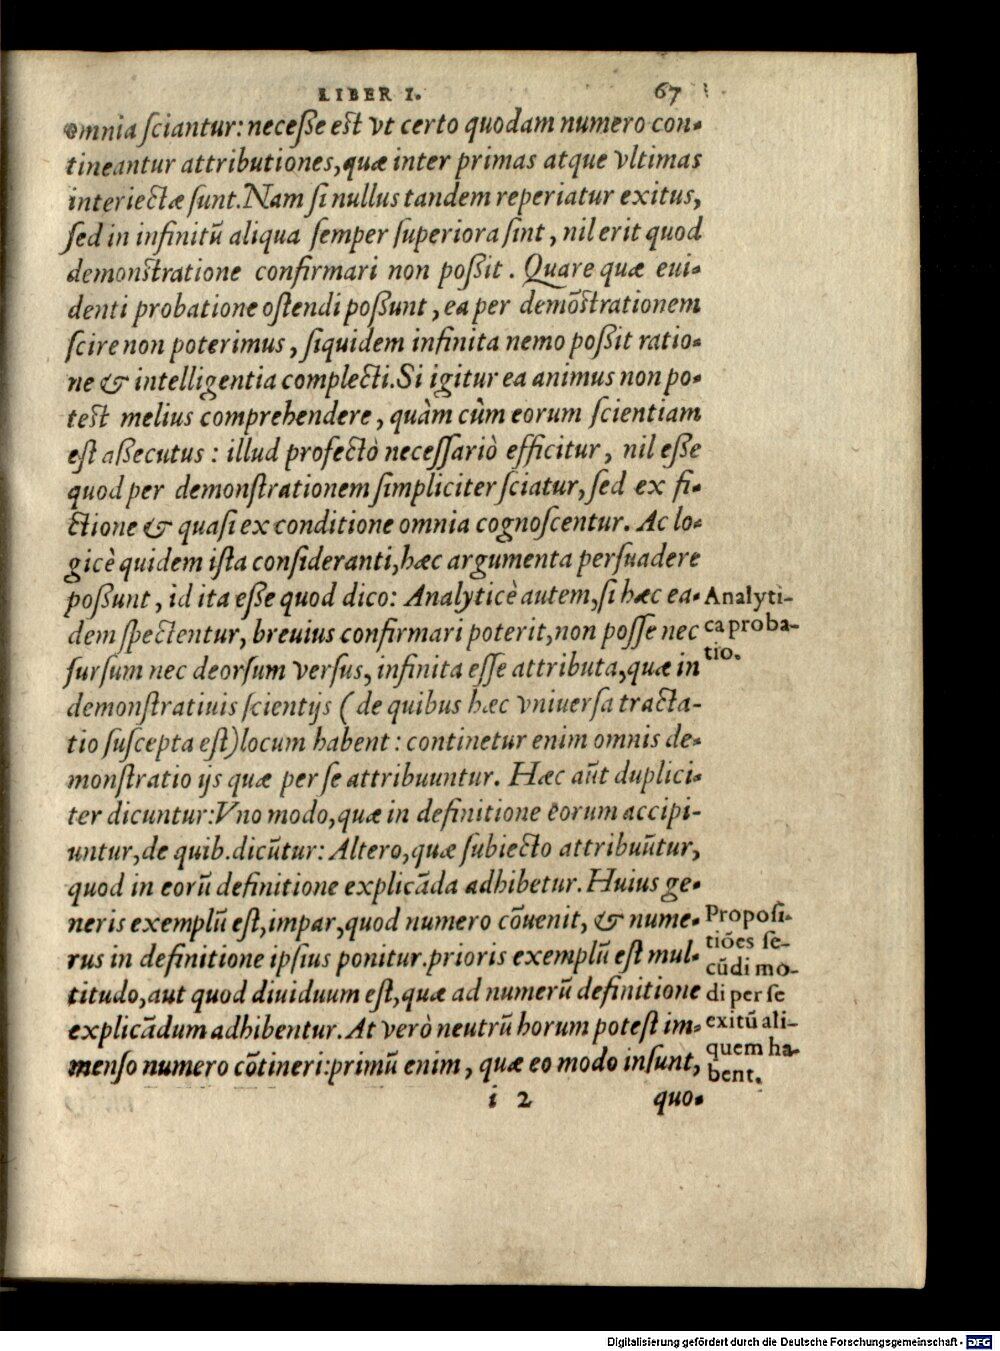 LIBER I. 67
omnia sciantur: necesse est vt certo quodam numero con-
tineantur attributiones, quæ inter primas atque vltimas
interiectæ sunt. Nam si nullus tandem reperiatur exitus,
sed in infinitū aliqua semper superiora sint, nil erit quod
demonstratione confirmari non possit. Quare quæ eui-
denti probatione ostendi possunt, ea per demōstrationem
scire non poterimus, siquidem infinita nemo possit ratio-
ne & intelligentia complecti. Si igitur ea animus non po-
test melius comprehendere, quàm cùm eorum scientiam
est assecutus: illud profectò necessariò efficitur, nil esse
quod per demonstrationem simpliciter sciatur, sed ex fi-
ctione & quasi ex conditione omnia cognoscentur. Ac lo-
gicè quidem ista consideranti, hæc argumenta persuadere
possunt, id ita esse quod dico: Analyticè autem, si hæc ea-
dem spectentur, breuius confirmari poterit, non posse nec
sursum nec deorsum versus, infinita esse attributa, quæ in
demonstratiuis scientijs (de quibus hæc vniuersa tracta-
tio suscepta est) locum habent: continetur enim omnis de-
monstratio ijs quæ per se attribuuntur. Hæc aūt duplici-
ter dicuntur: Vno modo, quæ in definitione eorum accipi-
untur, de quib. dicūtur: Altero, quæ subiecto attribuūtur,
quod in eorū definitione explicāda adhibetur. Huius ge-
neris exemplū est, impar, quod numero cōuenit, & nume-
rus in definitione ipsius ponitur. prioris exemplū est mul-
titudo, aut quod diuiduum est, quæ ad numerū definitione
explicādum adhibentur. At verò neutrū horum potest im-
menso numero cōtineri: primū enim, quæ eo modo insunt,
i 2 quo-
Analyti-
ca proba-
tio.
Proposi-
tiōes se-
cūdi mo-
di per se
exitū ali-
quem ha-
bent.
Digitalisierung gefördert durch die Deutsche Forschungsgemeinschaft - DFG